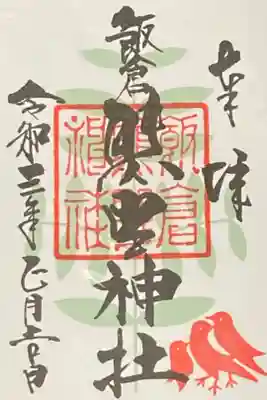 奉拝
飯倉
熊野神社
令和三年正月 日
飯倉
熊野
神社